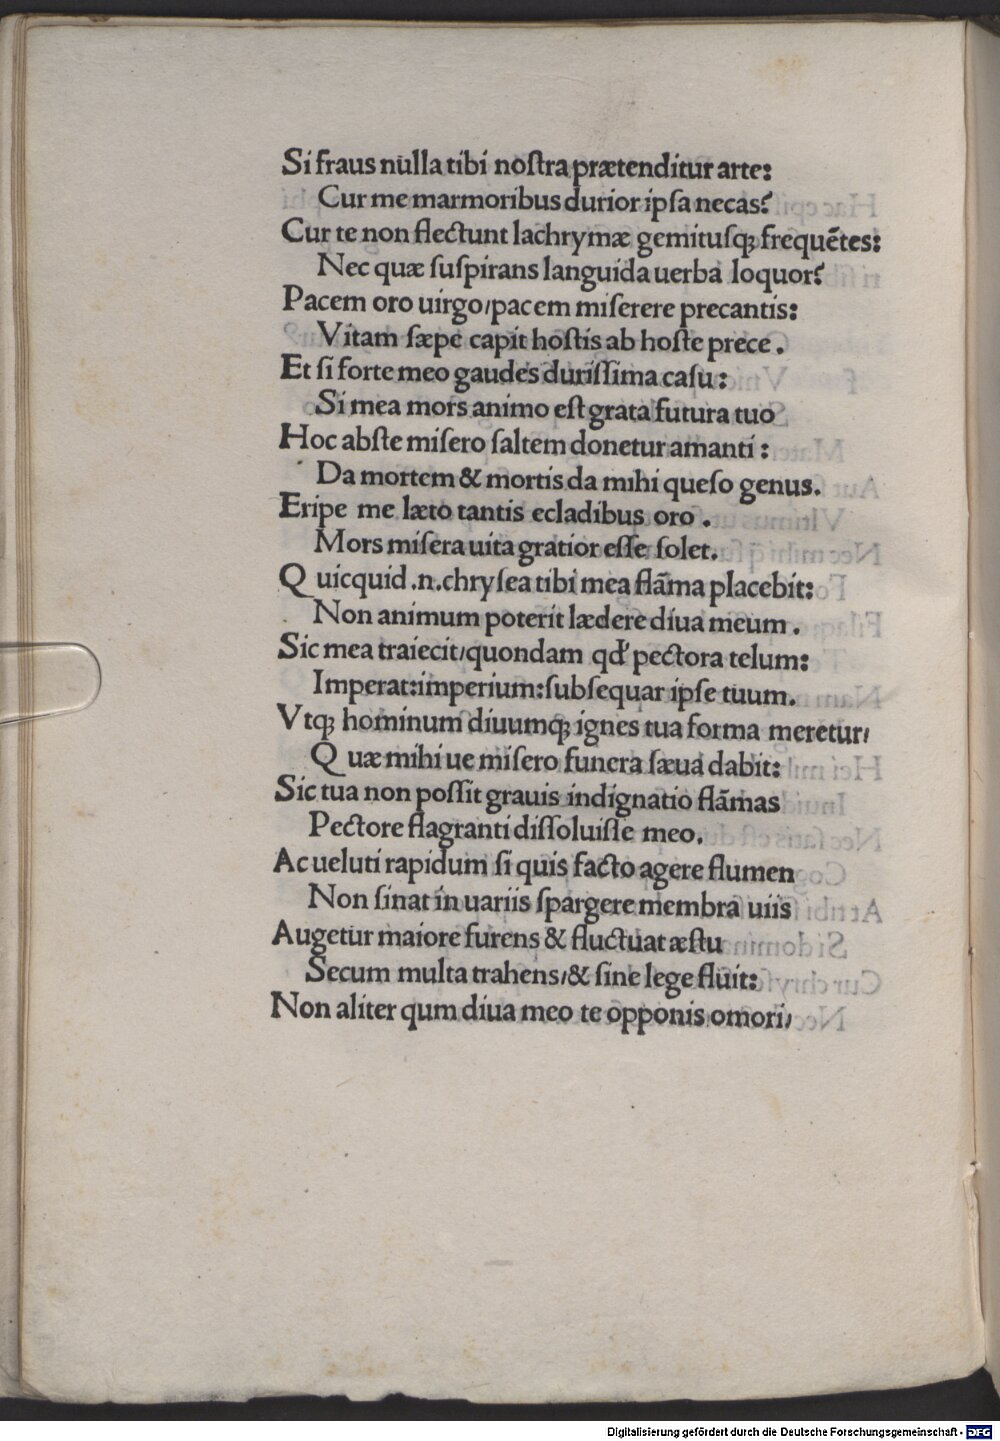 Si fraus nulla tibi nostra prætenditur arte:
Cur me marmoribus durior ipsa necas?
Cur te non flectunt lachrymæ gemitusqꝫ frequētes:
Nec quæ suspirans languida uerba loquor?
Pacem oro uirgo/pacem miserere precantis:
Vitam sæpe capit hostis ab hoste prece.
Et si forte meo gaudes durissima casu:
Si mea mors animo est grata futura tuo
Hoc abste misero saltem donetur amanti:
Da mortem & mortis da mihi queso genus.
Eripe me læto tantis ecladibus oro.
Mors misera uita gratior esse solet.
Quicquid .n. chrysea tibi mea flāma placebit:
Non animum poterit lædere diua meum.
Sic mea traiecit/quondam qd' pectora telum:
Imperat:imperium:subsequar ipse tuum.
Vtqꝫ hominum diuumqꝫ ignes tua forma meretur/
Quæ mihi ue misero funera sæua dabit:
Sic tua non possit grauis indignatio flāmas
Pectore flagranti dissoluisse meo.
Ac ueluti rapidum si quis facto agere flumen
Non sinat in uariis spargere membra uiis
Augetur maiore furens & fluctuat æstu
Secum multa trahens/& sine lege fluit:
Non aliter qum diua meo te opponis omori/
Digitalisierung gefördert durch die Deutsche Forschungsgemeinschaft - DFG